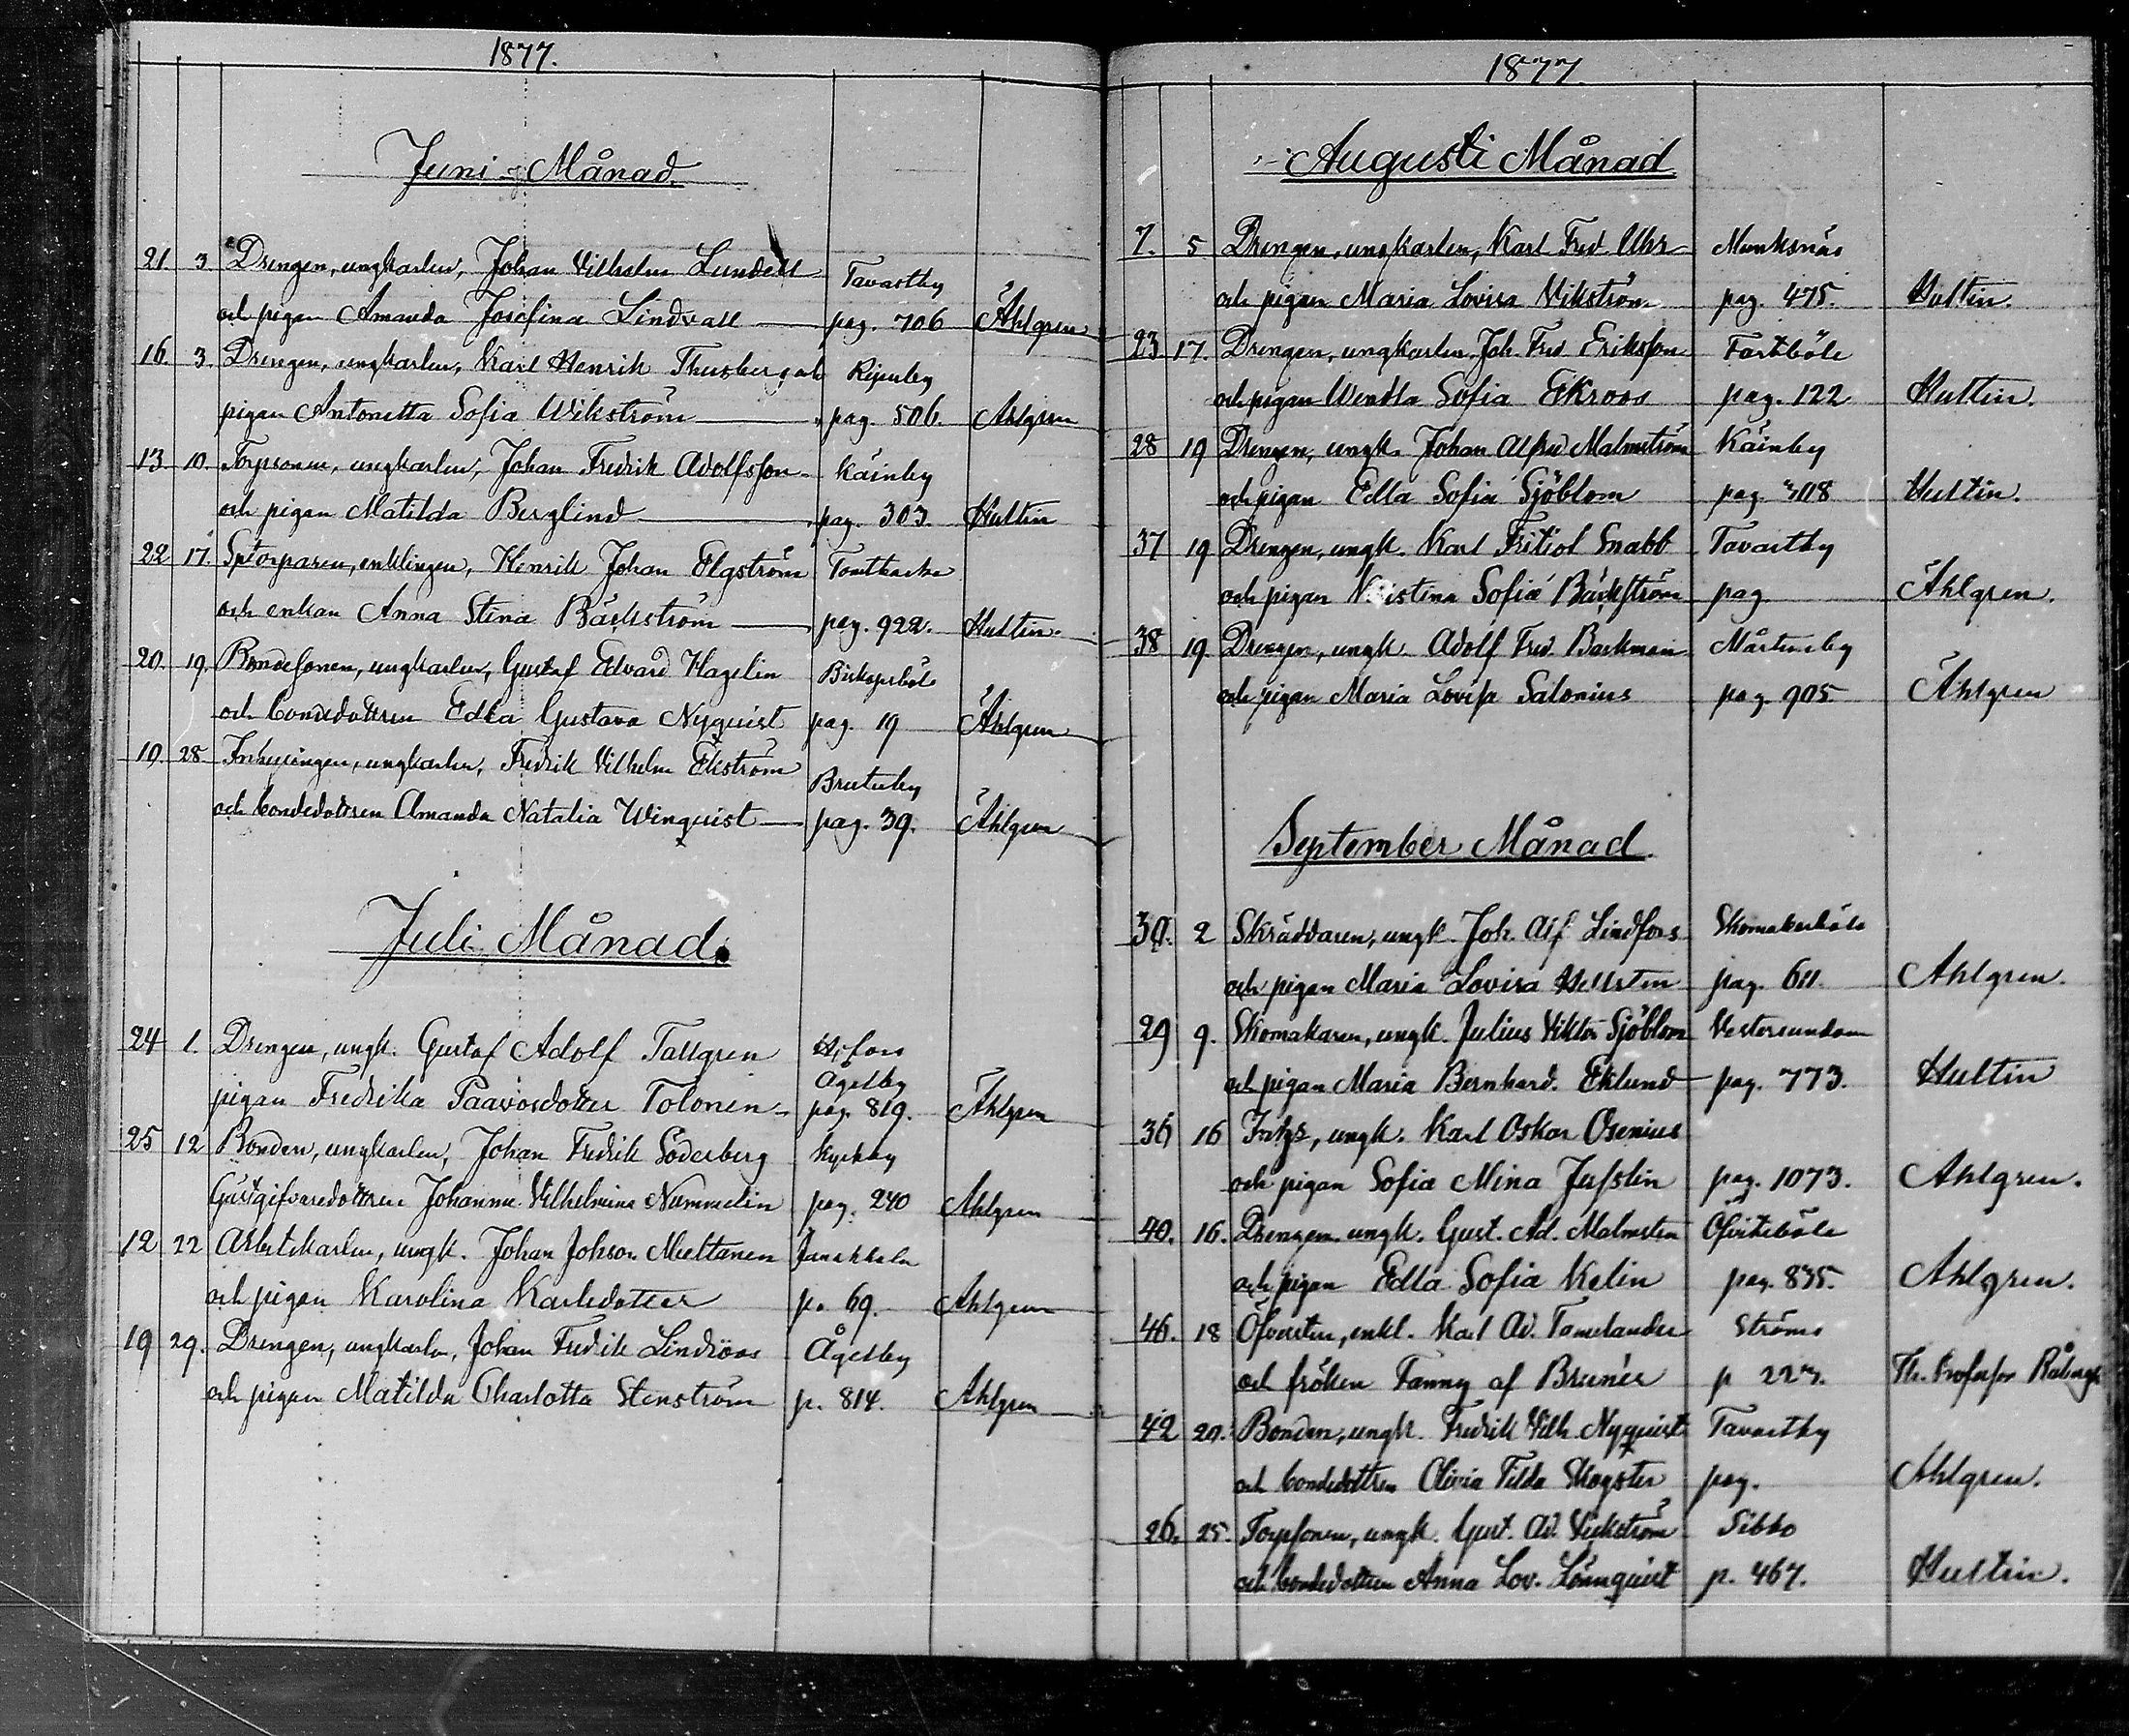 1877.
Juni Månad.
21 3 Drengen, ungkarlen, Johan Vilhelm Lundell Tavastby
och pigan Amanda Josefina Lindvall pag. 706 Åhlgren
16. 3. Drengen, ungkarlen, Karl Henrik Thusberg och
pigan Antonetta Sofia Wikström pag. 506. Ahlgren
13 10. Torpsonen, ungkarlen, Johan Fredrik Adolfsson Käinby
och pigan Matilda Berglind pag. 303. Hultin
22 17. Sptorparen, enklingen, Henrik Johan Elgström Tomtbacka
och enkan Anna Stina Bäckström pag. 922. Hultin.
20. 19. Bondesonen, ungkarlen, Gustaf Edvard Hagelin Biskopsböle
och bondedottren Edla Gustava Nyquist pag. 19 Åhlgren
10. 28. ungkarlen, Fredrik Vilhelm Ekström
och bondedottren Amanda Natalia Winquist pag. 39. Åhlgren
Juli Månad.
24 1. Drengen, ungk. Gustaf Adolf Tallgren H:fors
Ågesby
pigan Fredrika Paavosdotter Tolonen pag. 819. Åhlgren
25 12 Bonden, ungkarlen, Johan Fredrik Söderberg Kyrkby
Gästgifvaredottren Johanna Vilhelmina Nummelin pag. 240 Ahlgren
12 22 Arbetskarlen, ungk. Johan Johsson Miettanen Janakkala
och pigan Karolina Karlsdotter p. 69. Ahlgren
19 29. Drengen, ungkarlen, Johan Fredrik Lindroos Ågesby
och pigan Matilda Charlotta Stenström p. 814. Ahlgren
1877
Augusti Månad
7. 5 Drengen, ungkarlen, Karl Fred. Uhr Munksnäs
och pigan Maria Lovisa Vikström pag. 475. Hultin.
23 17. Drengen, ungkarlen Joh. Fred Eriksson Fastböle
och pigan Wendla Sofia Ekroos pag. 122 Hultin.
28 19 Drengen, ungk. Johan Alfred Malmström Käinby
och pigan Edla Sofia Sjöblom pag. 308 Hultin.
37 19 Drengen, ungk. Karl Fritiof Snabb Tavastby
och pigan Kristina Sofia Bäckström pag Åhlgren.
38 19. Drengen, ungk. Adolf Fred. Backman Mårtensby
och pigan Maria Lovisa Salonius pag. 905. Åhlgren
September Månad.
39. 2 Skräddaren, ungk. Joh. Alf Lindfors Skomakarböle
och pigan Maria Lovisa Hellsten pag. 611. Ahlgren.
29 9. Skomakaren, ungk. Julius Viktor Sjöblom Vestersundom
och pigan Maria Bernhard. Eklund pag. 773. Hultin
36 16 ungk. Karl Oskar Osenius
och pigan Sofia Mina Jusslin pag. 1073. Ahlgren.
40. 16. Drengen ungk. Gust. Ad. Malmsten Öfvitsböle
och pigan Edla Sofia Kalin pag. 835. Ahlgren.
46. 18 Öfversten, enkl. Karl Ad. Tamelander Ströms
och fröken Fanny af Bruner p 227. Th. Professor Råbergh
42 20. Bonden, ungk. Fredrik Vilh. Nyquist Tavastby
och bondedottren Olivia Tilda Skogster pag. Ahlgren.
26. 25. Torpsonen, ungk. Gust. Ad. Vickström Sibbo
och bondedottren Anna Lov. Lönnquist p. 467. Hultin.